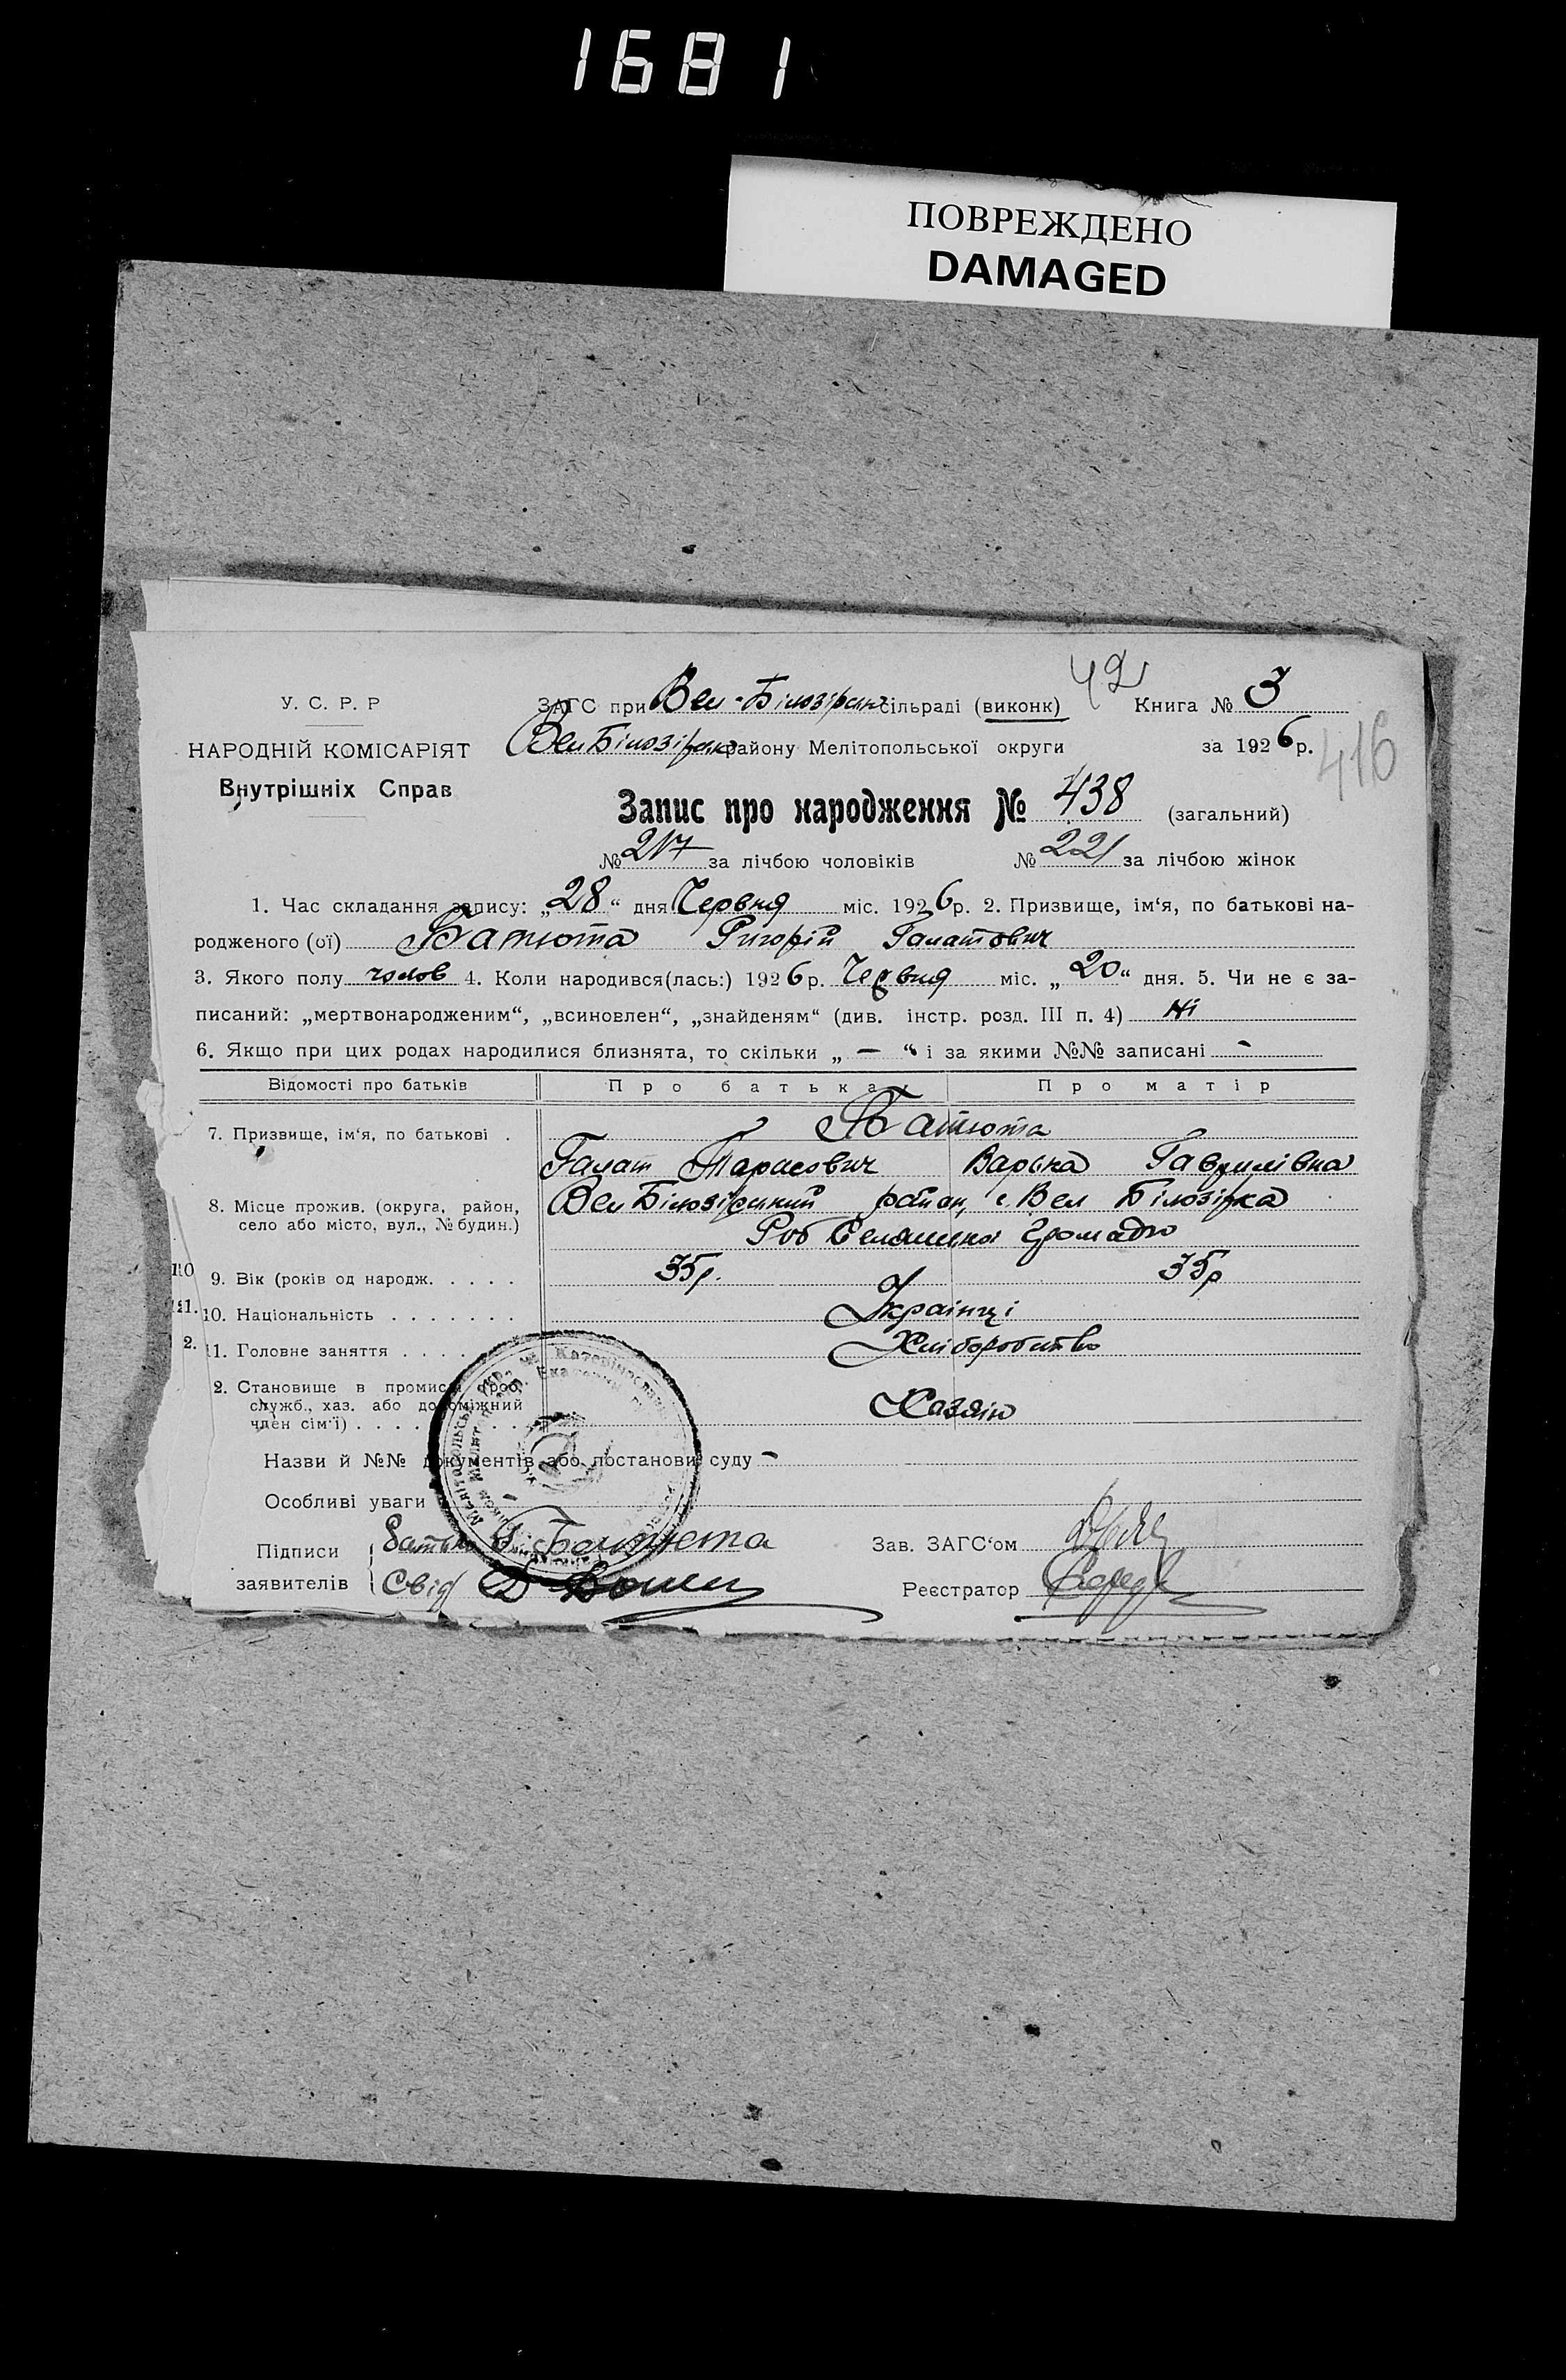 1681
ПОВРЕЖДЕНО
DAMAGED
42
У. С. Р. Р
ЗАГС при Вел-Білозірск сільраді (виконк) Книга № 3
НАРОДНІЙ КОМІСАРІЯТ
ВелБілозірск району Мелітопольської округи за 1926 р.
416
Внутрішніх Справ
Запис про народження № 438 (загальний)
№ 217 за лічбою чоловіків № 221 за лічбою жінок
1. Час складання запису: „28“ дня Червня міс. 1926 р. 2. Призвище, ім‘я, по батькові на-
родженого (ої) Батюта Григорій Галатович
3. Якого полу чолов 4. Коли народився(лась:) 1926 р. Червня міс. „20“ дня. 5. Чи не є за-
писаний: „мертвонародженим“, „всиновлен“, „знайденям“ (див. інстр. розд. III п. 4) Ні
6. Якщо при цих родах народилися близнята, то скільки „ — “ і за якими №№ записані -
Відомості про батьків Про батька Про матір
7. Призвище, ім‘я, по батькові . Батюта
Галат Тарасович Варька Гаврилівна
8. Місце прожив. (округа, район, ВелБілозірський район, с. Вел Білозірка
село або місто, вул., № будин.)
Громади
110 9. Вік (років од народж. . . . . 35р. 35р
10. Національність . . . . . . . Українці
2. 11. Головне заняття . . . . . Хліборобство
2. Становище в промисл (роб,
служб., хаз. або допоміжний Хазяїн
член сім‘ї) . . . .
Назви й №№ документів або постанови суду -
Особливі уваги
Підписи Батько Г Батюта Зав. ЗАГС‘ом
заявителів Свід Реєстратор